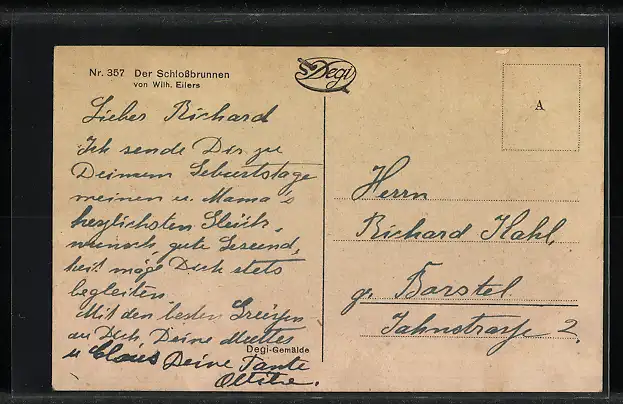 Nr. 357 Der Schloßbrunnen
von Wilh. Eilers
Degi
A
Lieber Richard
Ich sende Dir zu
Deinem Geburtstage
meinen u. Mama's
herzlichsten Glück-
wunsch, gute Gesund-
heit möge Dich stets
begleiten.
Mit den besten Grüßen
an Dich, Deine Mutter
u Claus Deine Tante
Degi-Gemälde
Herrn
Richard Kahl,
Barstel
Jahnstraße 2.